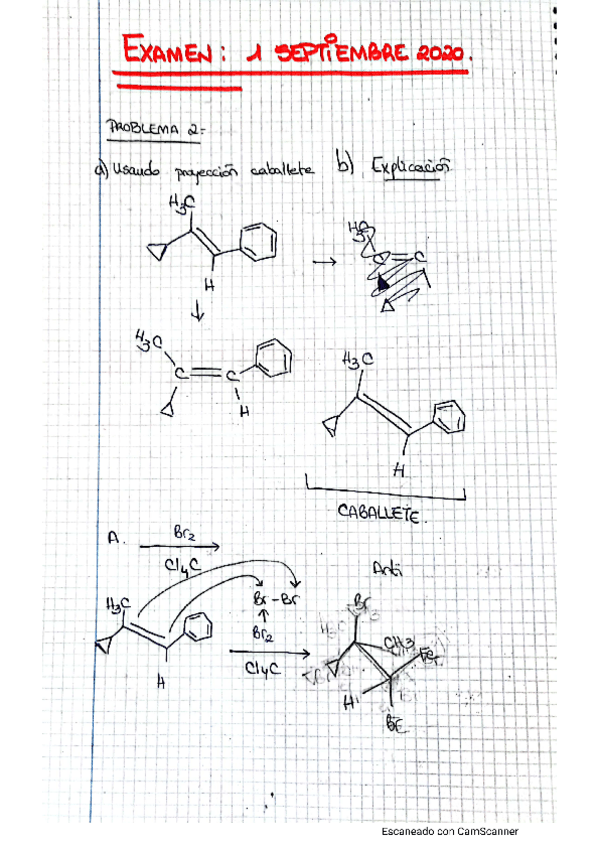 EXAMEN: 1 SEPTIEMBRE 2020.
PROBLEMA 2:
a) Usando proyección caballete b) Explicación
H3C
H3C
C=C
H
H3C
C
C
H
H3C
H
CABALLETE.
A. Br2
Cl4C
Anti
H3C
Br-Br
Br2
Cl4C
H
Br
CH3
H
Br
Escaneado con CamScanner